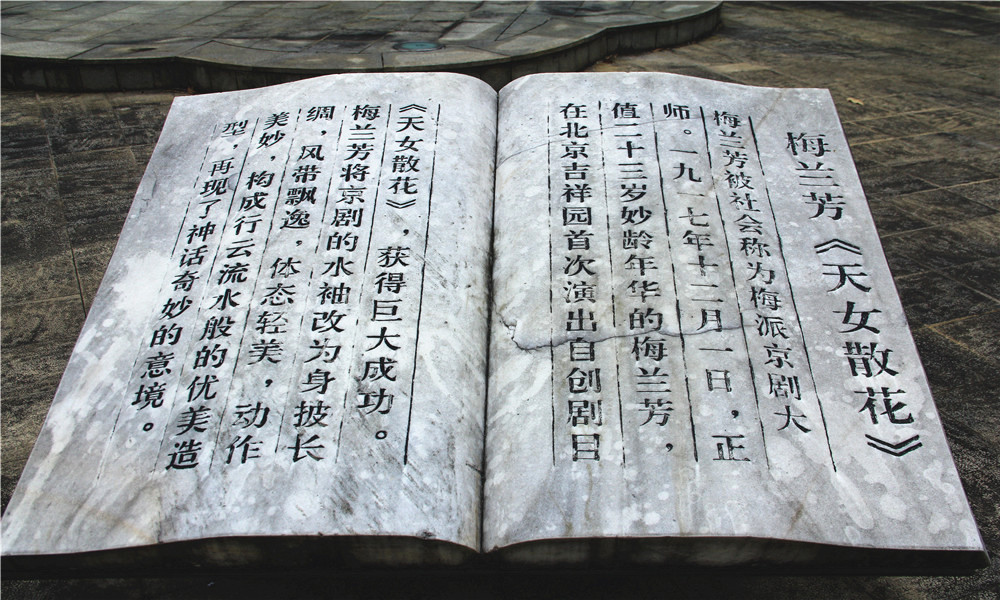 梅兰芳《天女散花》
梅兰芳被社会称为梅派京剧大
师。一九一七年十二月一日，正
值二十三岁妙龄年华的梅兰芳，
在北京吉祥园首次演出自创剧目
《天女散花》，获得巨大成功。
梅兰芳将京剧的水袖改为身披长
绸，风带飘逸，体态轻美，动作
美妙，构成行云流水般的优美造
型，再现了神话奇妙的意境。